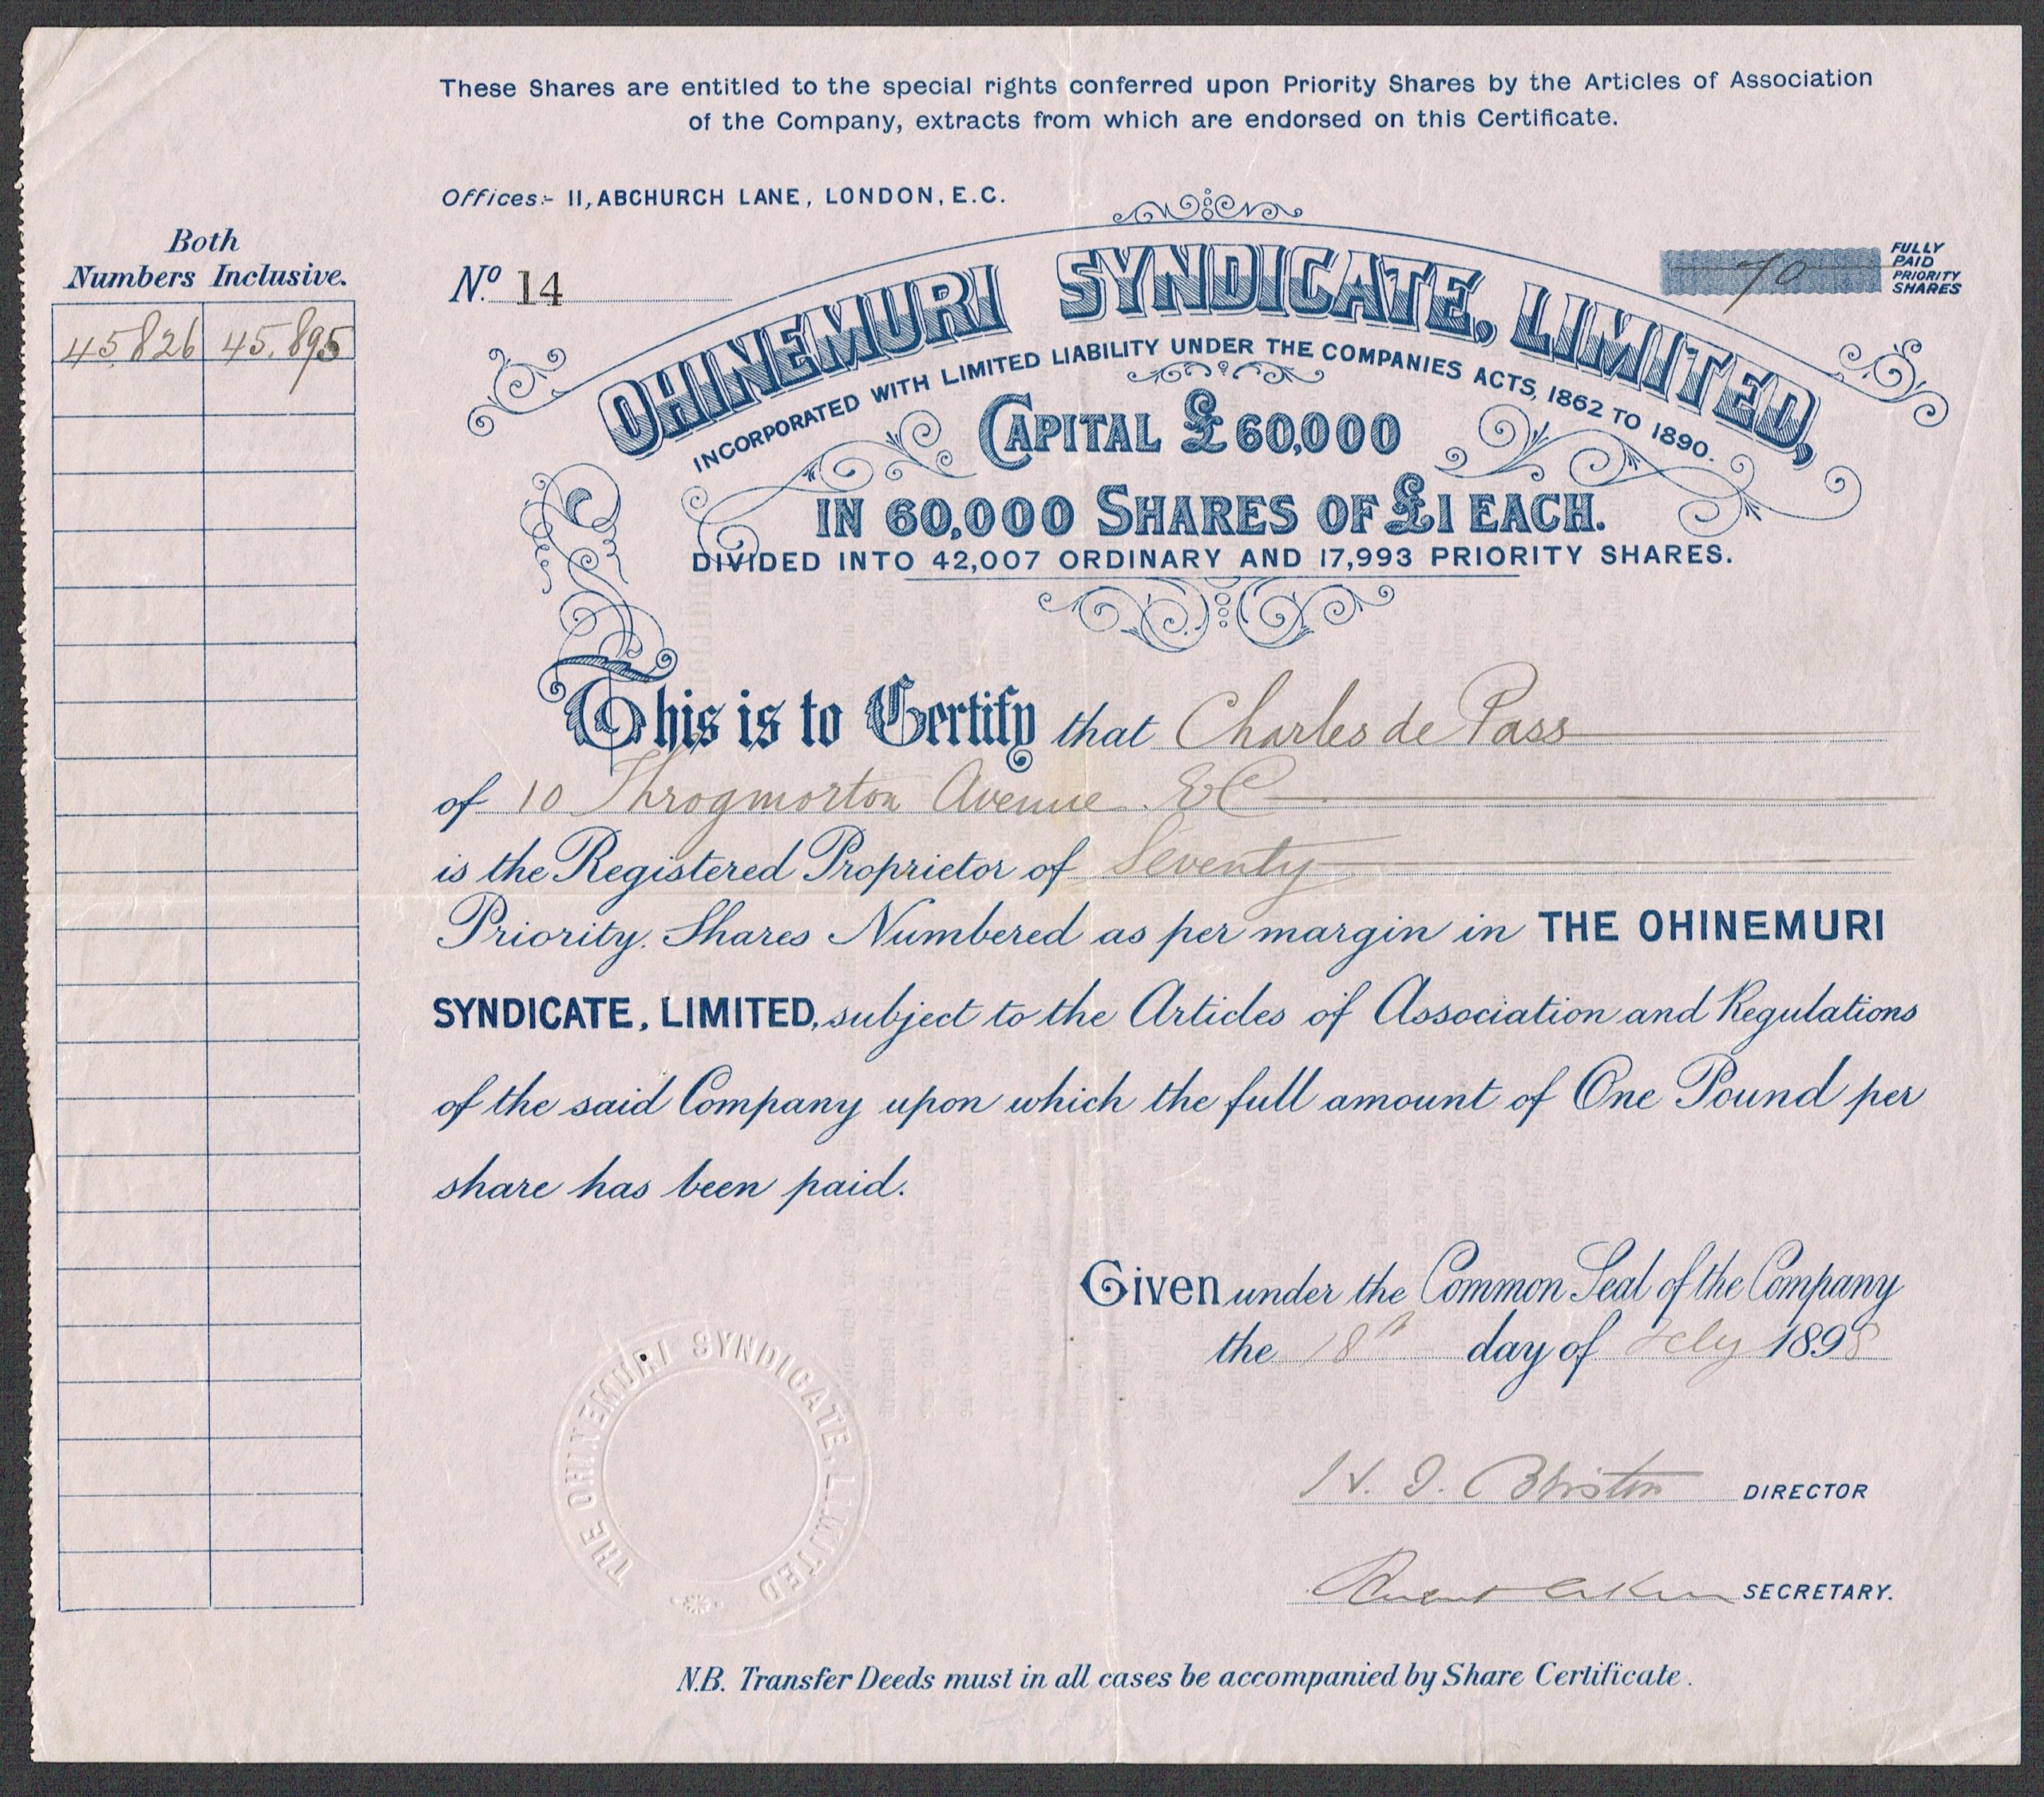 These Shares are entitled to the special rights conferred upon Priority Shares by the Articles of Association
of the Company, extracts from which are endorsed on this Certificate.
Offices:- 11, ABCHURCH LANE, LONDON, E.C.
Both
Numbers Inclusive.
45,826 45,895
No. 14
70
FULLY
PAID
PRIORITY
SHARES
OHINEMURI SYNDICATE, LIMITED,
INCORPORATED WITH LIMITED LIABILITY UNDER THE COMPANIES ACTS, 1862 TO 1890.
CAPITAL £60,000
IN 60,000 SHARES OF £1 EACH.
DIVIDED INTO 42,007 ORDINARY AND 17,993 PRIORITY SHARES.
This is to Certify that Charles de Pass
of 10 Throgmorton Avenue. EC
is the Registered Proprietor of Seventy
Priority. Shares Numbered as per margin in THE OHINEMURI
SYNDICATE, LIMITED, subject to the Articles of Association and Regulations
of the said Company upon which the full amount of One Pound per
share has been paid.
Given under the Common Seal of the Company
the 18th day of 1898
DIRECTOR
SECRETARY.
THE OHINEMURI SYNDICATE, LIMITED
N.B. Transfer Deeds must in all cases be accompanied by Share Certificate.